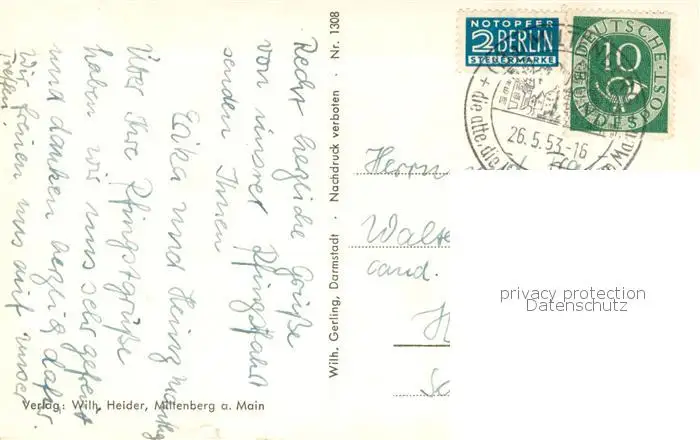 Recht herzliche Grüße
von unsrer Pfingstfahrt
senden Ihnen
Erika und Heinz
Über Ihre Pfingstgrüße
haben wir uns sehr gefreut
und danken herzlich dafür.
Wir freuen uns auf unser
Treffen!
Verlag: Wilh. Heider, Miltenberg a. Main
Wilh. Gerling, Darmstadt · Nachdruck verboten · Nr. 1308
NOTOPFER
2 BERLIN
STEUERMARKE
DEUTSCHE
BUNDESPOST
10
+ die alte, die
26.5.53.-16
Herrn
Walte
cand.
H
privacy protection
Datenschutz